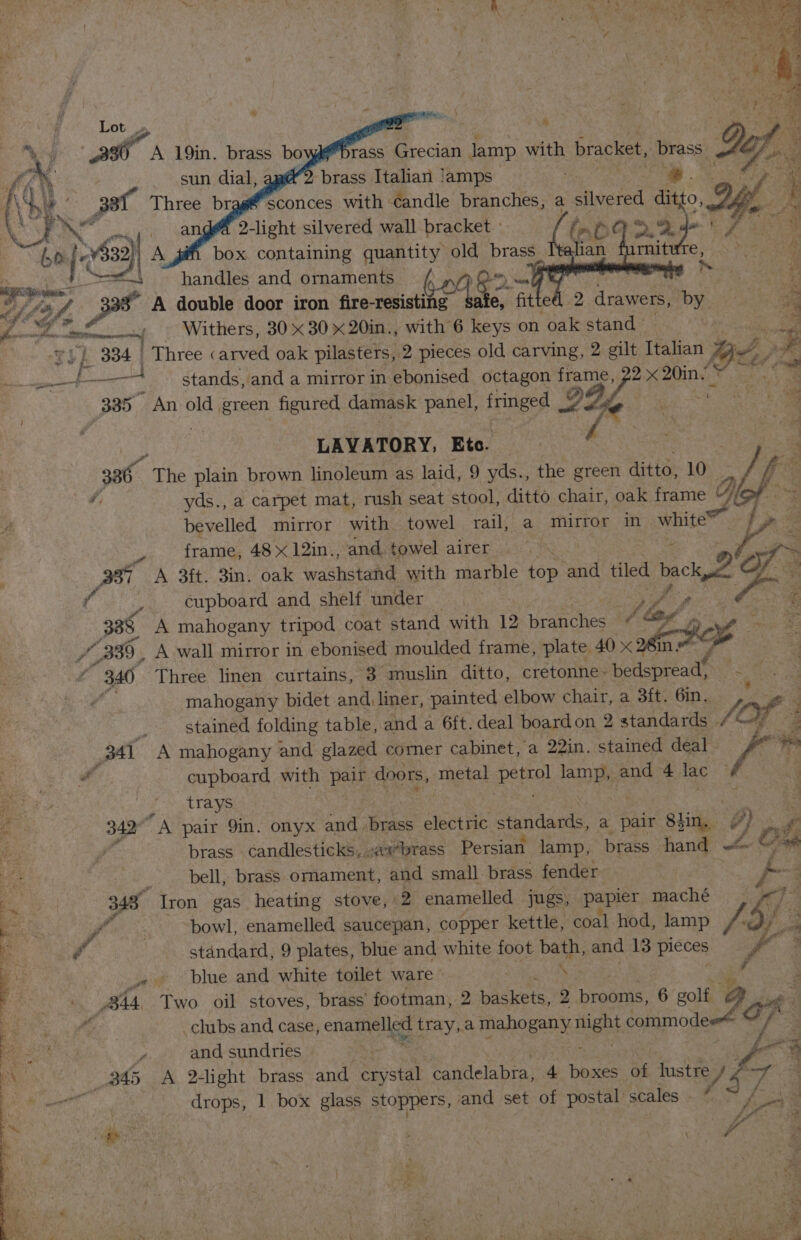 22
Lot
330 A 19in. brass bowl, brass Grecian lamp with bracket, brass
sun dial, and 2 brass Italian lamps
331 Three brass sconces with candle branches, a silvered ditto,
and 2-light silvered wall bracket
332 A box containing quantity old brass Italian furniture,
handles and ornaments
333 A double door iron fire-resisting safe, fitted 2 drawers, by
Withers, 30 × 30 × 20in., with 6 keys on oak stand
334 Three carved oak pilasters, 2 pieces old carving, 2 gilt Italian
stands, and a mirror in ebonised octagon frame, 22 × 20in.
335 An old green figured damask panel, fringed
LAVATORY, Etc.
336 The plain brown linoleum as laid, 9 yds., the green ditto, 10
yds., a carpet mat, rush seat stool, ditto chair, oak frame
bevelled mirror with towel rail, a mirror in white
frame, 48 × 12in., and towel airer
337 A 3ft. 3in. oak washstand with marble top and tiled back,
cupboard and shelf under
338 A mahogany tripod coat stand with 12 branches
339 A wall mirror in ebonised moulded frame, plate 40 × 26in.
340 Three linen curtains, 3 muslin ditto, cretonne bedspread,
mahogany bidet and liner, painted elbow chair, a 3ft. 6in.
stained folding table, and a 6ft. deal board on 2 standards
341 A mahogany and glazed corner cabinet, a 22in. stained deal
cupboard with pair doors, metal petrol lamp, and 4 lac
trays
342 A pair 9in. onyx and brass electric standards, a pair 8½in.
brass candlesticks, a brass Persian lamp, brass hand
bell, brass ornament, and small brass fender
343 Iron gas heating stove, 2 enamelled jugs, papier maché
bowl, enamelled saucepan, copper kettle, coal hod, lamp
standard, 9 plates, blue and white foot bath, and 13 pieces
blue and white toilet ware
344 Two oil stoves, brass footman, 2 baskets, 2 brooms, 6 golf
clubs and case, enamelled tray, a mahogany night commode
and sundries
345 A 2-light brass and crystal candelabra, 4 boxes of lustre
drops, 1 box glass stoppers, and set of postal scales